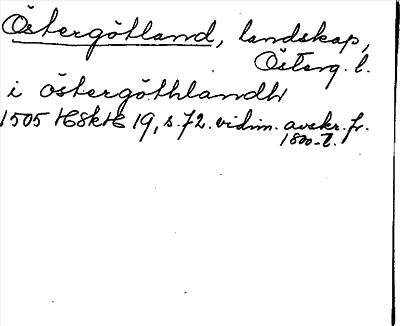 Östergötland, landskap,
Österg. l.
i östergöthlandh
1505 HSkH 19, s. 72. vidim. avskr. fr.
1800-t.